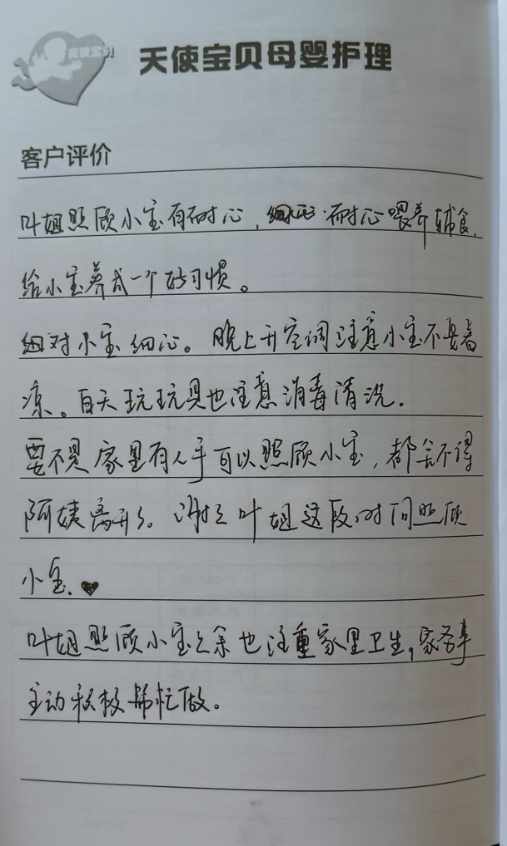 天使宝贝母婴护理
客户评价
叶姐照顾小宝有耐心，细心，耐心喂养辅食，
给小宝养成一个好习惯。
对小宝细心。晚上开空调注意小宝不要着
凉。白天玩玩具也注意消毒清洗．
要不是家里有人手可以照顾小宝，都舍不得
阿姨离开了。谢谢叶姐这段时间照顾
小宝．
叶姐照顾小宝之余也注重家里卫生，家务事
主动积极帮忙做。